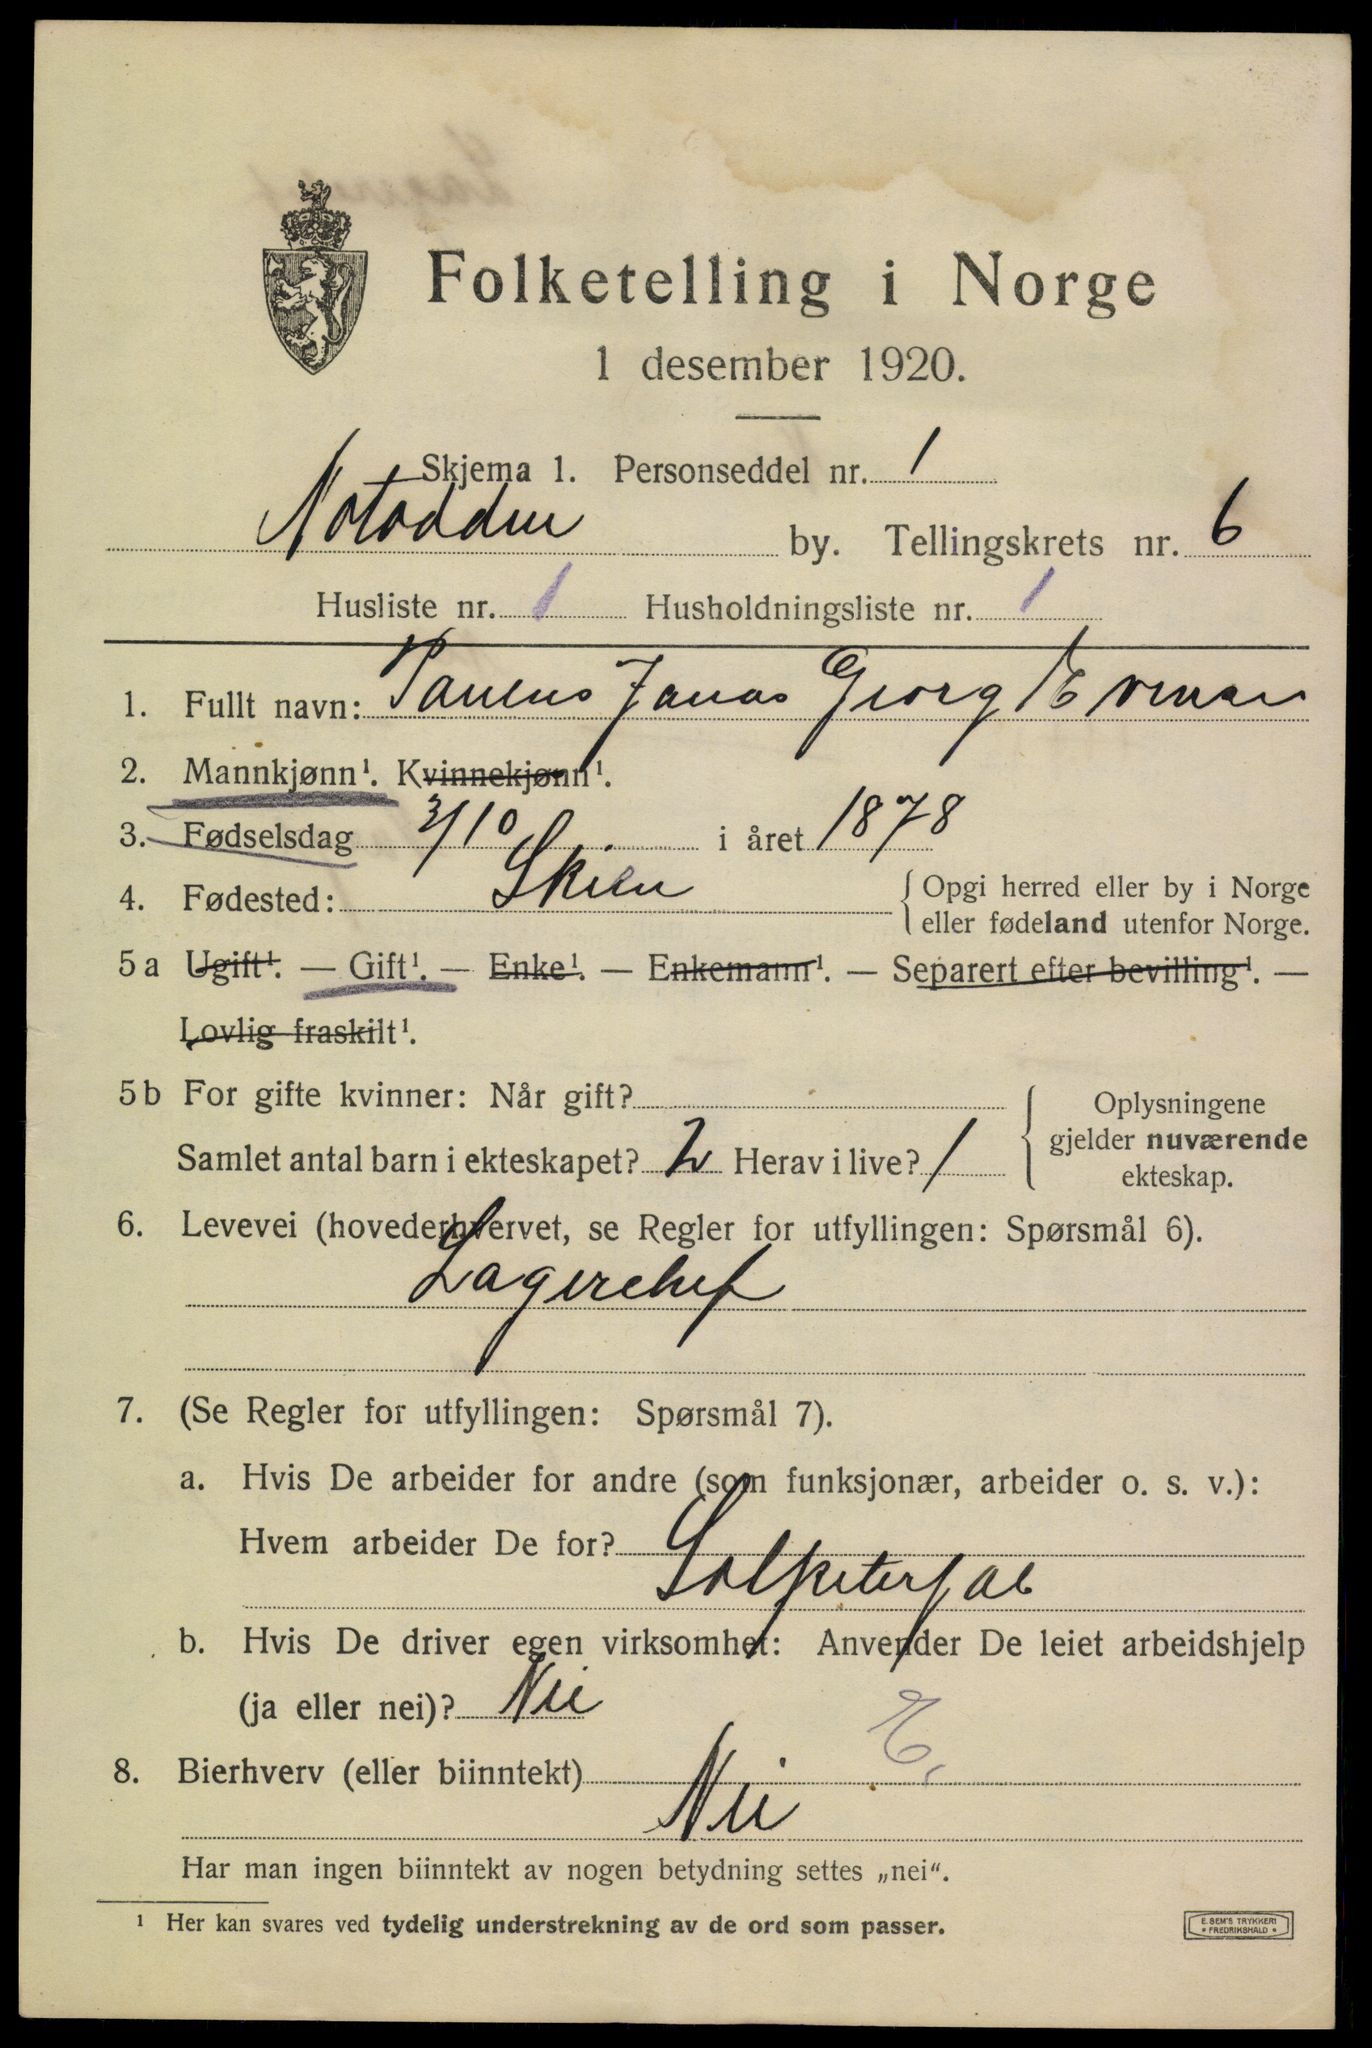 Folketelling i Norge
1 desember 1920.
Skjema 1. Personseddel nr. 1
Notodden by. Tellingskrets nr. 6
Husliste nr. 1 Husholdningsliste nr. 1
1. Fullt navn: Georg
2. Mannkjønn¹. Kvinnekjønn¹.
3. Fødselsdag 3/10 i året 1878
4. Fødested: Skien { Opgi herred eller by i Norge
eller fødeland utenfor Norge.
5a Ugift¹. — Gift¹. — Enke¹. — Enkemann¹. — Separert efter bevilling¹. —
Lovlig fraskilt¹.
5b For gifte kvinner: Når gift?
Samlet antal barn i ekteskapet? 2 Herav i live? 1
{ Oplysningene
gjelder nuværende
ekteskap.
6. Levevei (hovederhvervet, se Regler for utfyllingen: Spørsmål 6).
Lagerchef
7. (Se Regler for utfyllingen: Spørsmål 7).
a. Hvis De arbeider for andre (som funksjonær, arbeider o. s. v.):
Hvem arbeider De for?
Salpeterfab
b. Hvis De driver egen virksomhet: Anvender De leiet arbeidshjelp
(ja eller nei)? Nei
E,
8. Bierhverv (eller biinntekt)
Nei
Har man ingen biinntekt av nogen betydning settes „nei“.
¹ Her kan svares ved tydelig understrekning av de ord som passer.
E. SEM'S TRYKKERI
* FREDRIKSHALD *